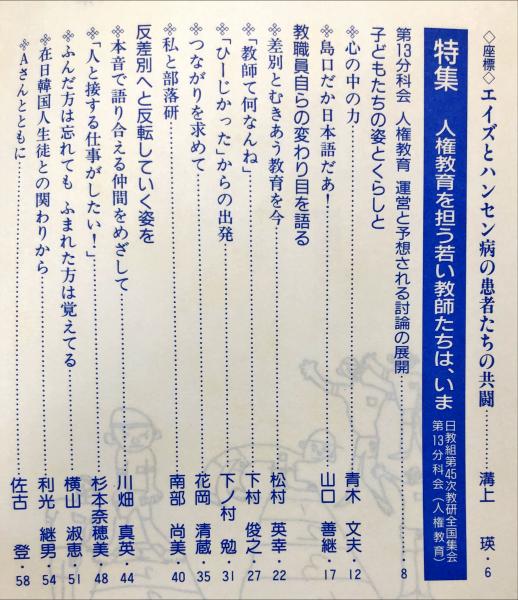 ◇座標◇ エイズとハンセン病の患者たちの共闘………溝上 瑛・6
特集 人権教育を担う若い教師たちは、いま 日教組第45次教研全国集会
第13分科会（人権教育）
第13分科会 人権教育 運営と予想される討論の展開………8
子どもたちの姿とくらしと
※心の中の力………青木 文夫・12
※島口だか日本語だあ！………山口 善継・17
教職員自らの変わり目を語る
※差別とむきあう教育を今………松村 英幸・22
※「教師て何なんね」………下村 俊之・27
※「ひーじかった」からの出発………下ノ村 勉・31
※つながりを求めて………花岡 清蔵・35
※私と部落研………南部 尚美・40
反差別へと反転していく姿を
※本音で語り合える仲間をめざして………川畑 真英・44
※「人と接する仕事がしたい！」………杉本奈穂美・48
※ふんだ方は忘れても ふまれた方は覚えてる………横山 淑恵・51
※在日韓国人生徒との関わりから………利光 継男・54
※Aさんとともに………佐古 登・58